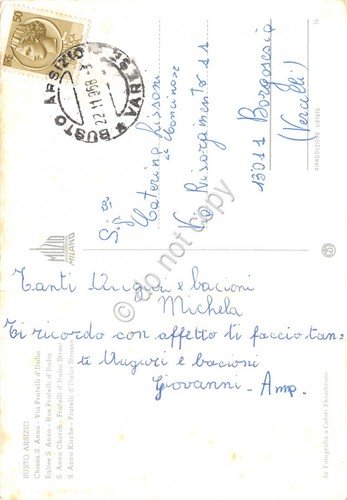 50
BUSTO ARSIZIO
22.11.968
* VARESE
Sig.ra
Caterina Lissoni
in Moncinose
Via Risorgimento 11
13011 Borgosesia
(Vercelli)
RIPRODUZIONE VIETATA
MILANO
do not copy
Tanti Auguri e bacioni
Michela
Ti ricordo con affetto ti faccio tan-
ti Auguri e bacioni
Giovanni - Amp.
BUSTO ARSIZIO
Chiesa S. Anna - Via Fratelli d'Italia
Eglise S. Anna - Rue Fratelli d'Italia
S. Anna Church - Fratelli d'Italia Street
S. Anna Kirche - Fratelli d'Italia
da Fotografia a Colori Ektachrome